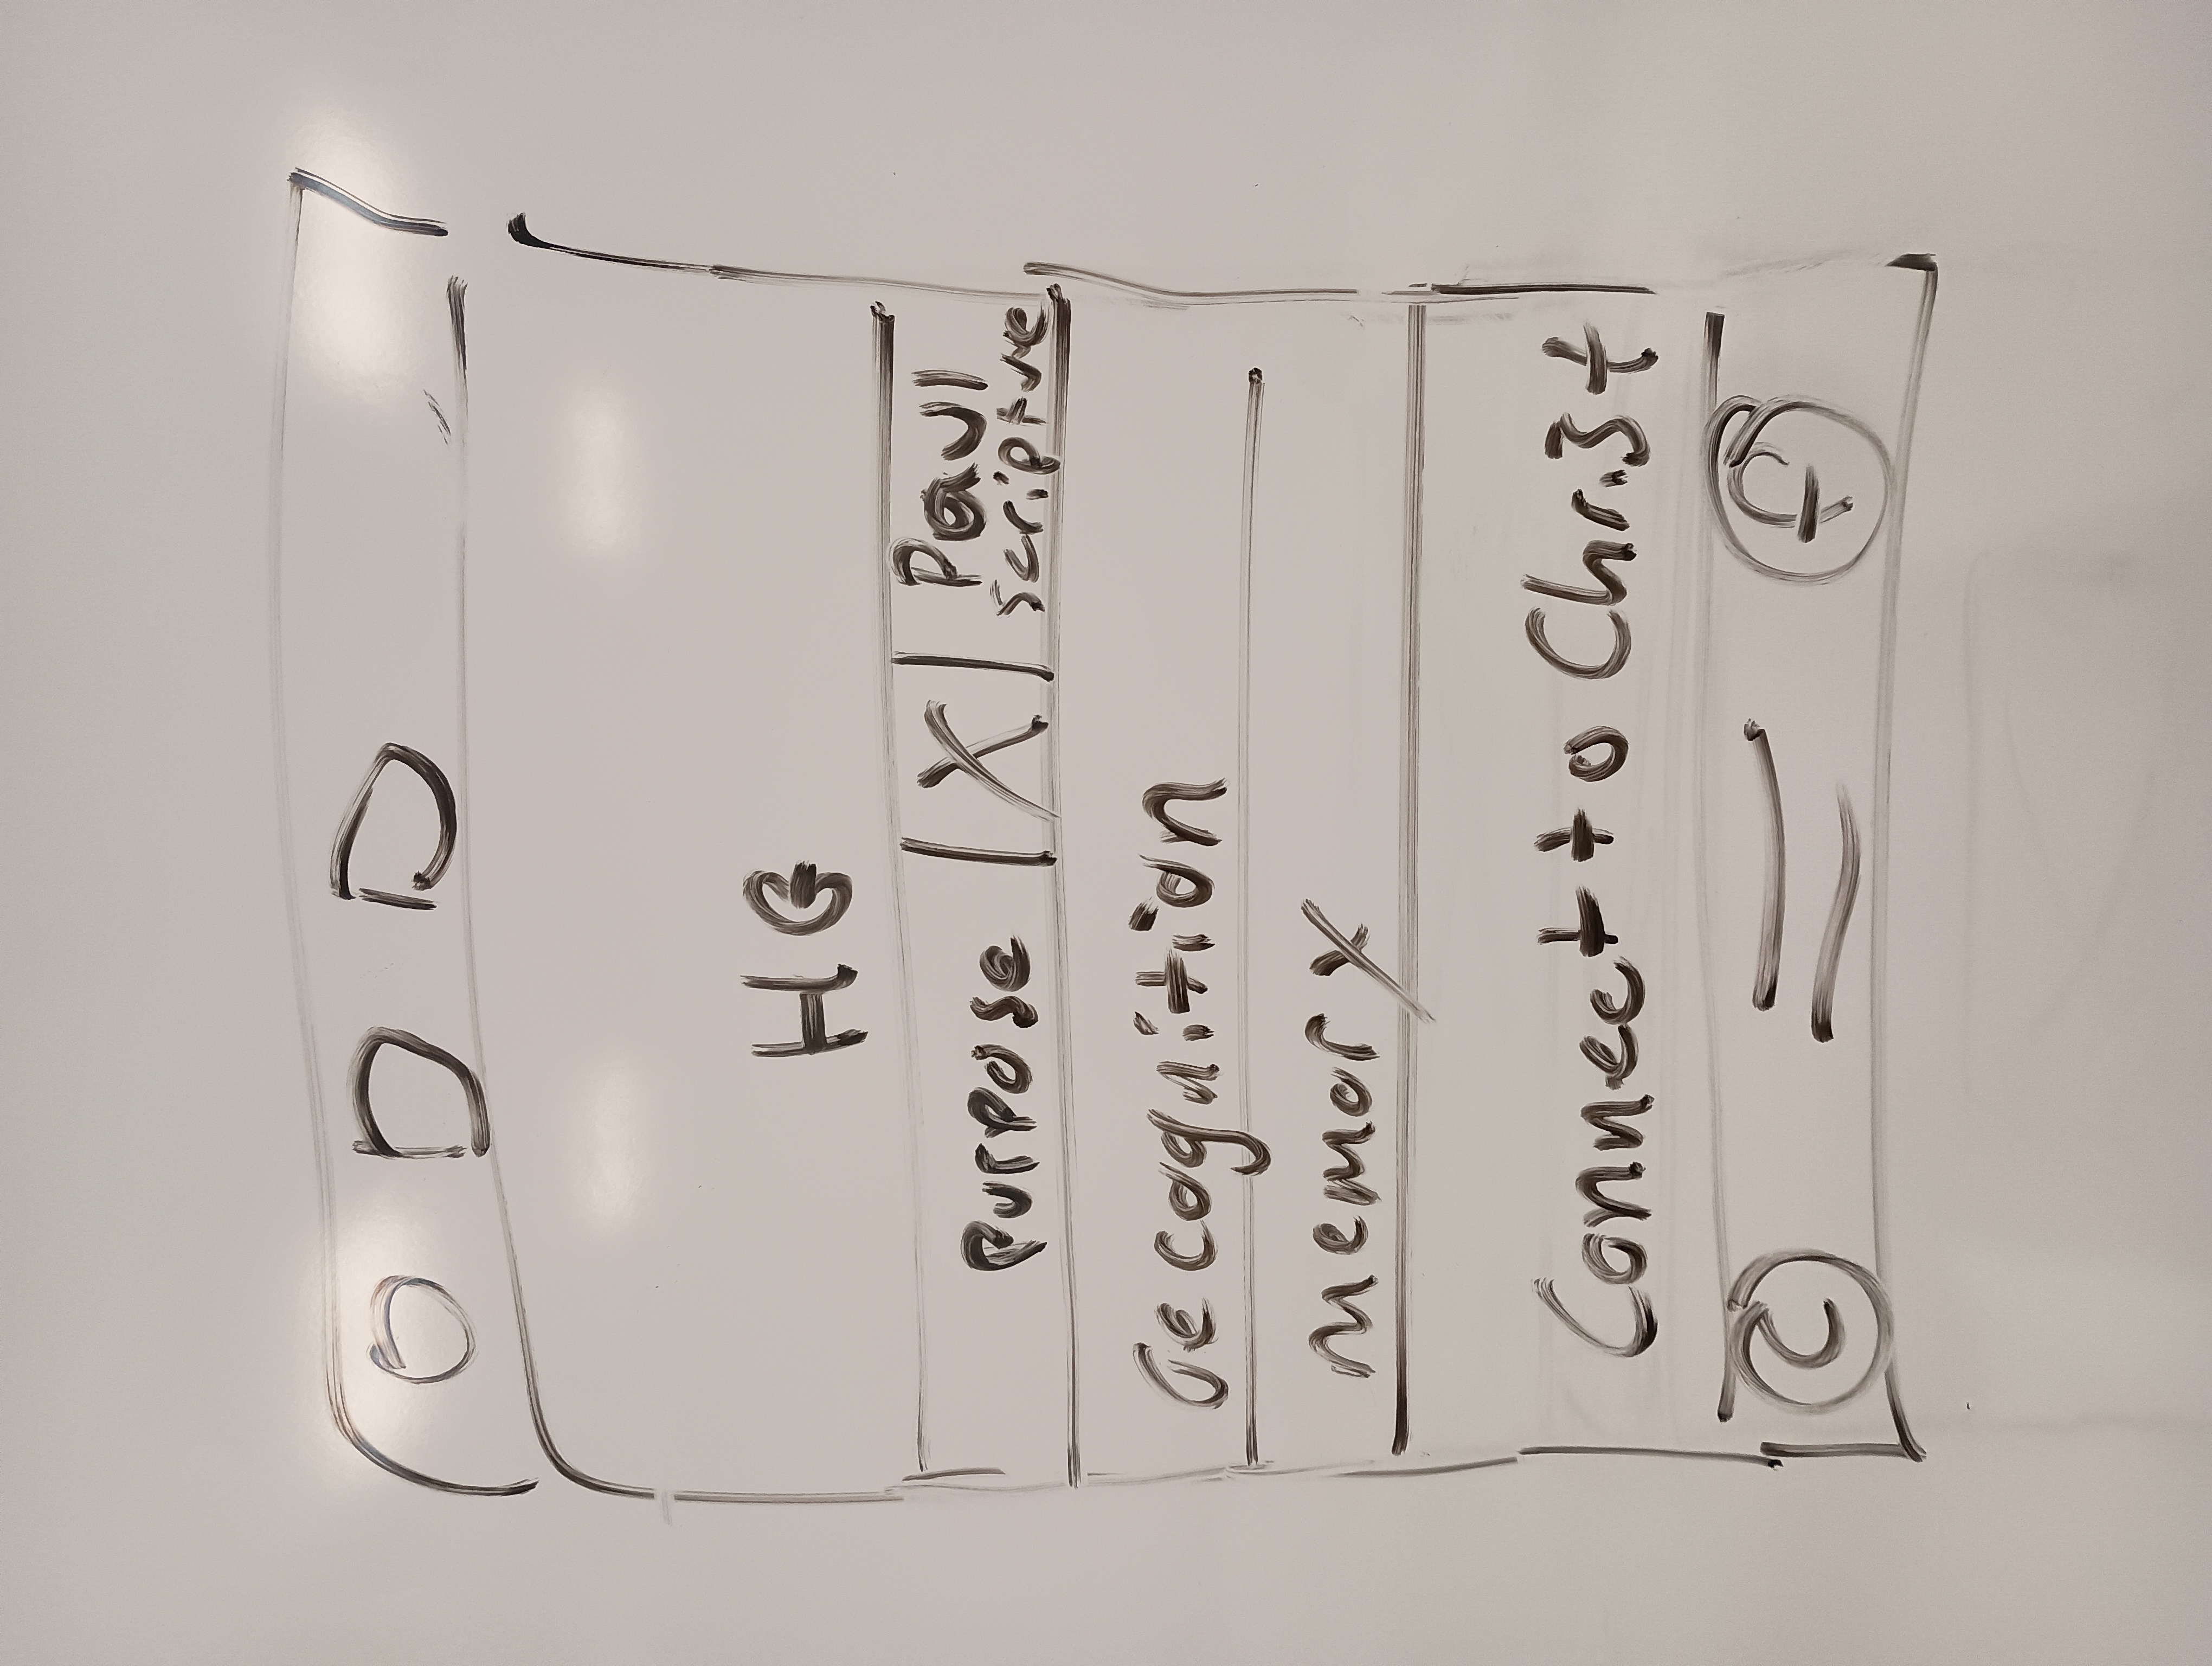 O D D
HG
Purpose | X | Paul scripture
recognition
memory
Connect to Christ
C f